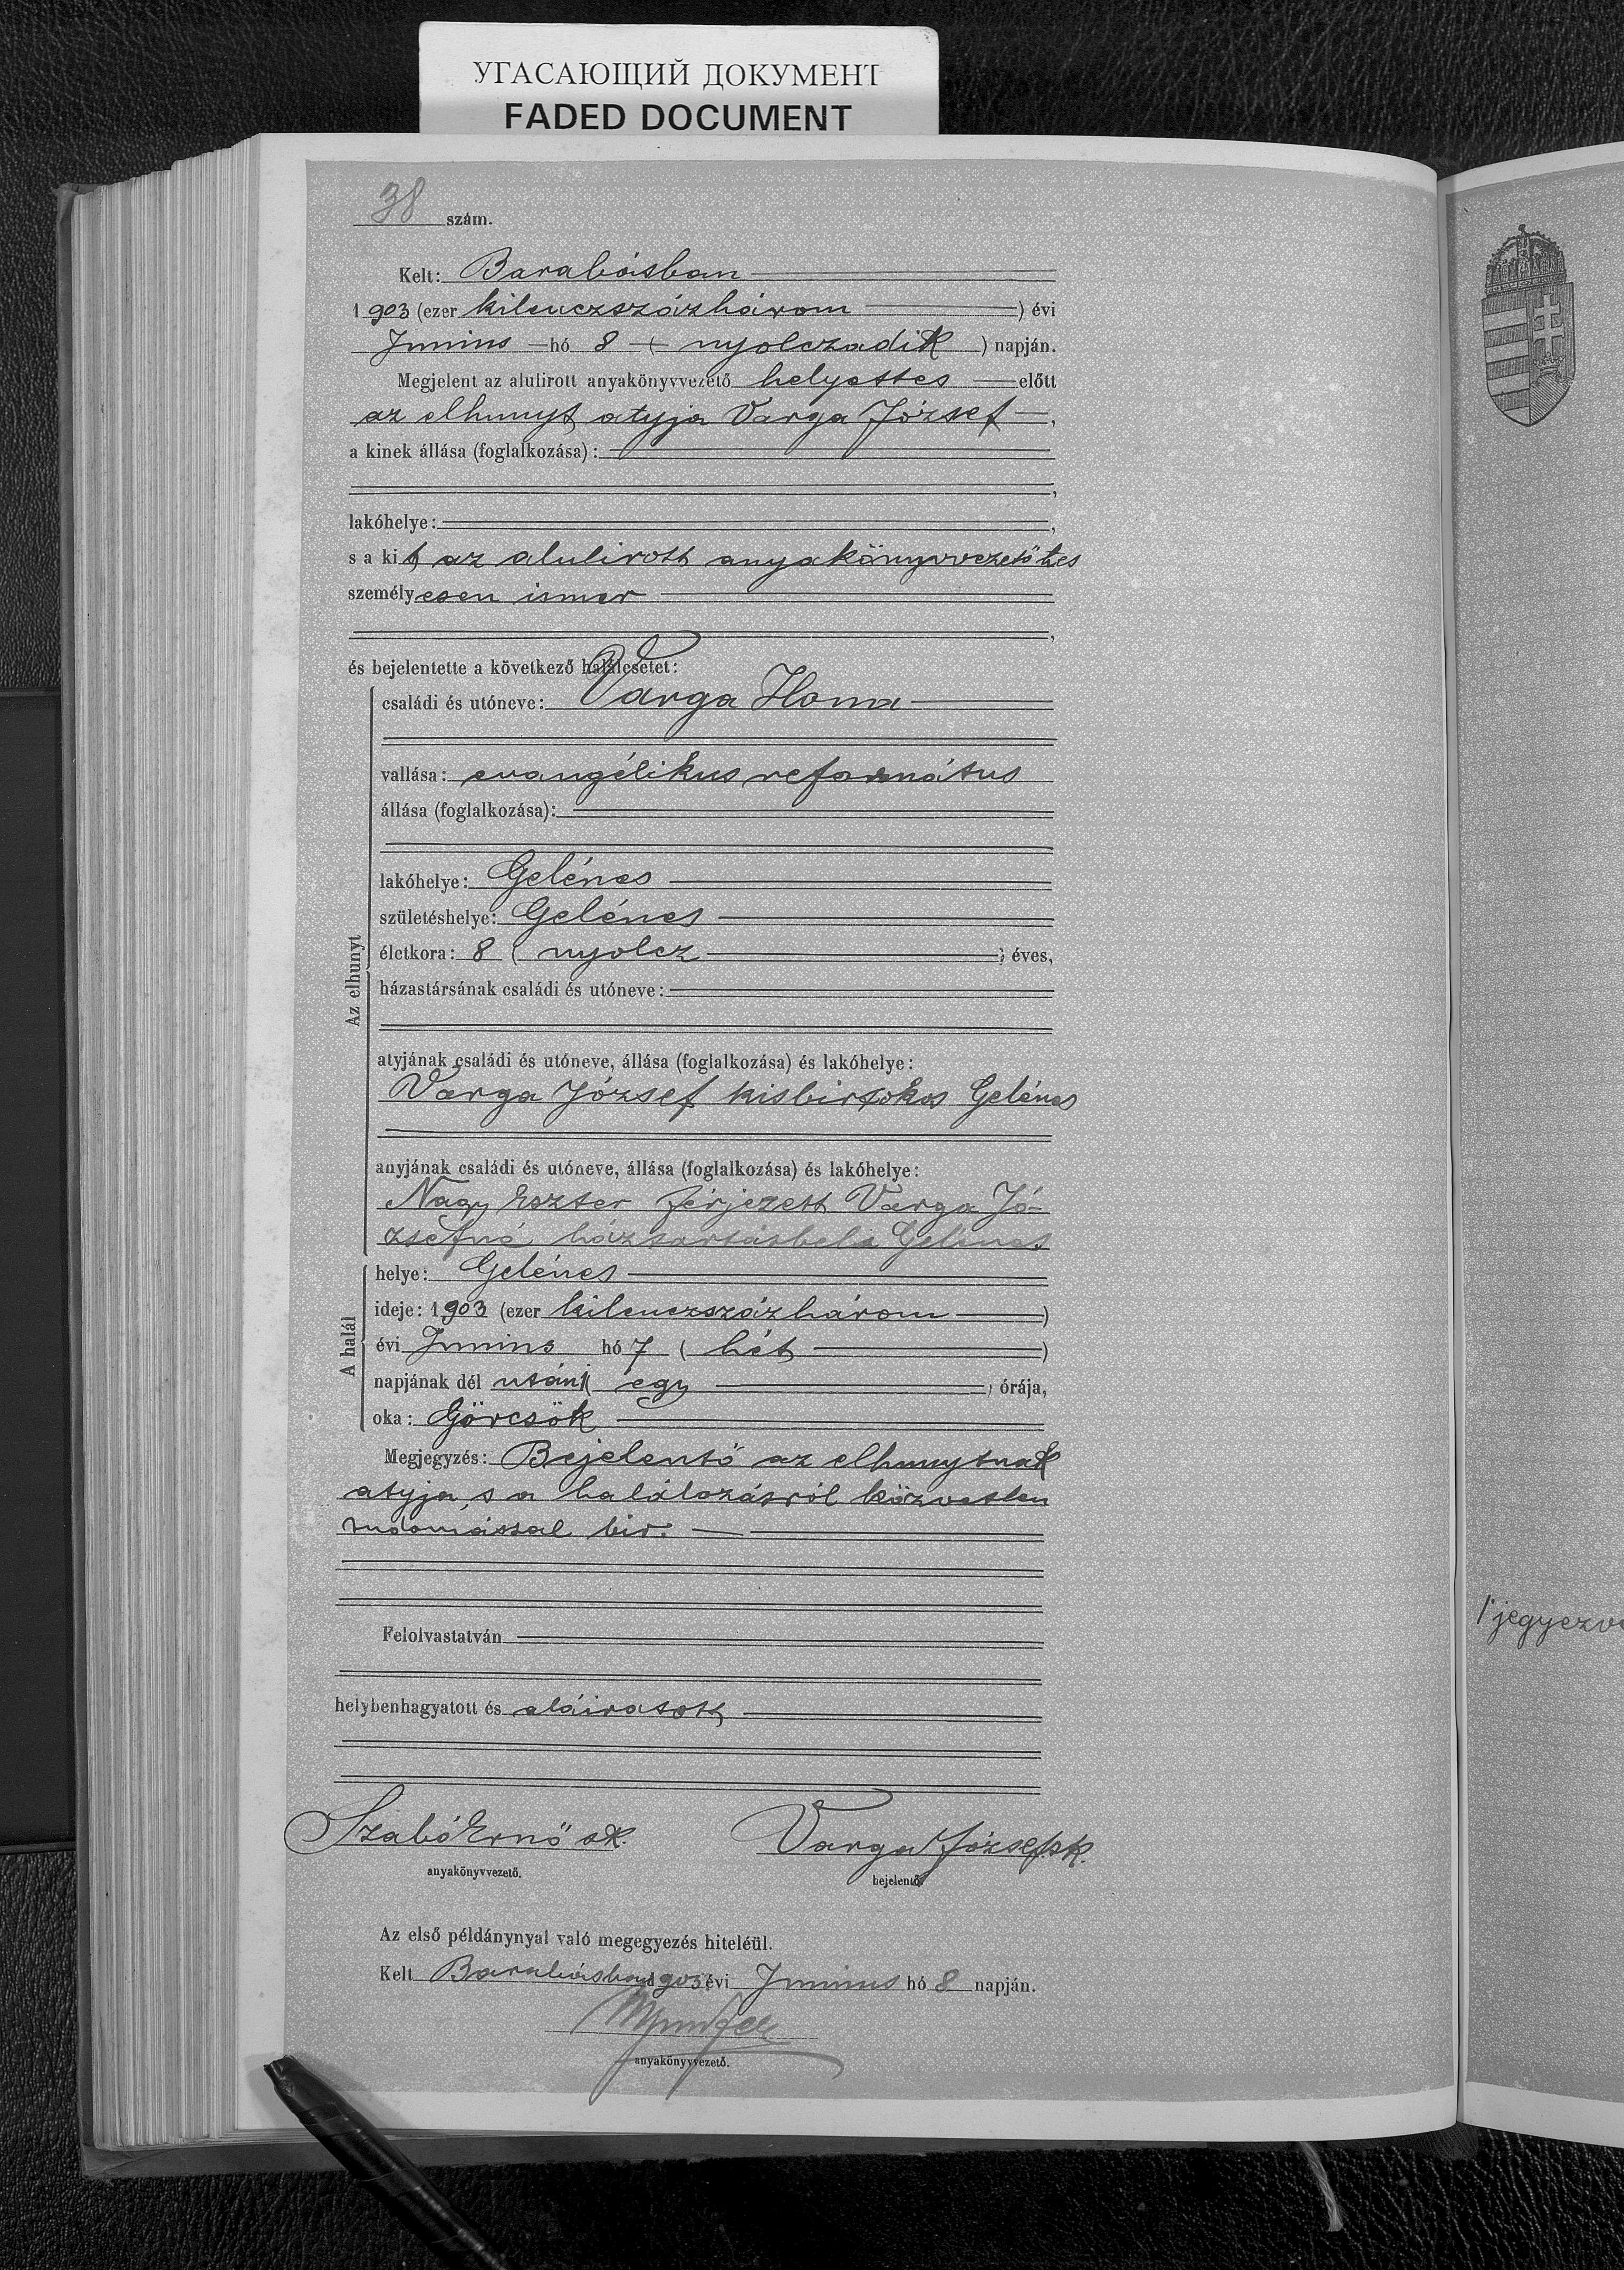 УГАСАЮЩИЙ ДОКУМЕНТ
FADED DOCUMENT
38 szám.
Kelt: Barabásban
1903 (ezer kilenczszázhárom ) évi
Junius hó 8 ( nyolczadik ) napján.
Megjelent az alulirott anyakönyvvezető helyettes előtt
az elhunyt atyja Varga József ,
a kinek állása (foglalkozása):
,
lakóhelye: ,
s a kit az alulirott anyakönyvvezető htes
személyesen ismer
,
és bejelentette a következő halálesetet:
Az elhunyt
családi és utóneve: Varga Ilona
vallása: evangélikus református
állása (foglalkozása):
lakóhelye: Gelénes
születéshelye: Gelénes
életkora: 8 ( nyolcz ) éves,
házastársának családi és utóneve:
atyjának családi és utóneve, állása (foglalkozása) és lakóhelye:
Varga József kisbirtokos Gelénes
anyjának családi és utóneve, állása (foglalkozása) és lakóhelye:
Nagy Eszter férjezett Varga Jó-
zsefné háztartásbeli Gelénes
A halál
helye: Gelénes
ideje: 1903 (ezer kilenczszázhárom )
évi Junius hó 7 ( hét )
napjának dél után 1 ( egy ) órája,
oka: Görcsök
Megjegyzés: Bejelentő az elhunytnak
atyja, s a halálozásról közvetlen
tudomással bir.
Felolvastatván
helybenhagyatott és aláiratott
Szabó Ernő sk. Varga József sk.
anyakönyvvezető. bejelentő.
Az első példánynyal való megegyezés hiteléül.
Kelt Barabásban 1903 évi Junius hó 8 napján.
anyakönyvvezető.
1 jegyezve